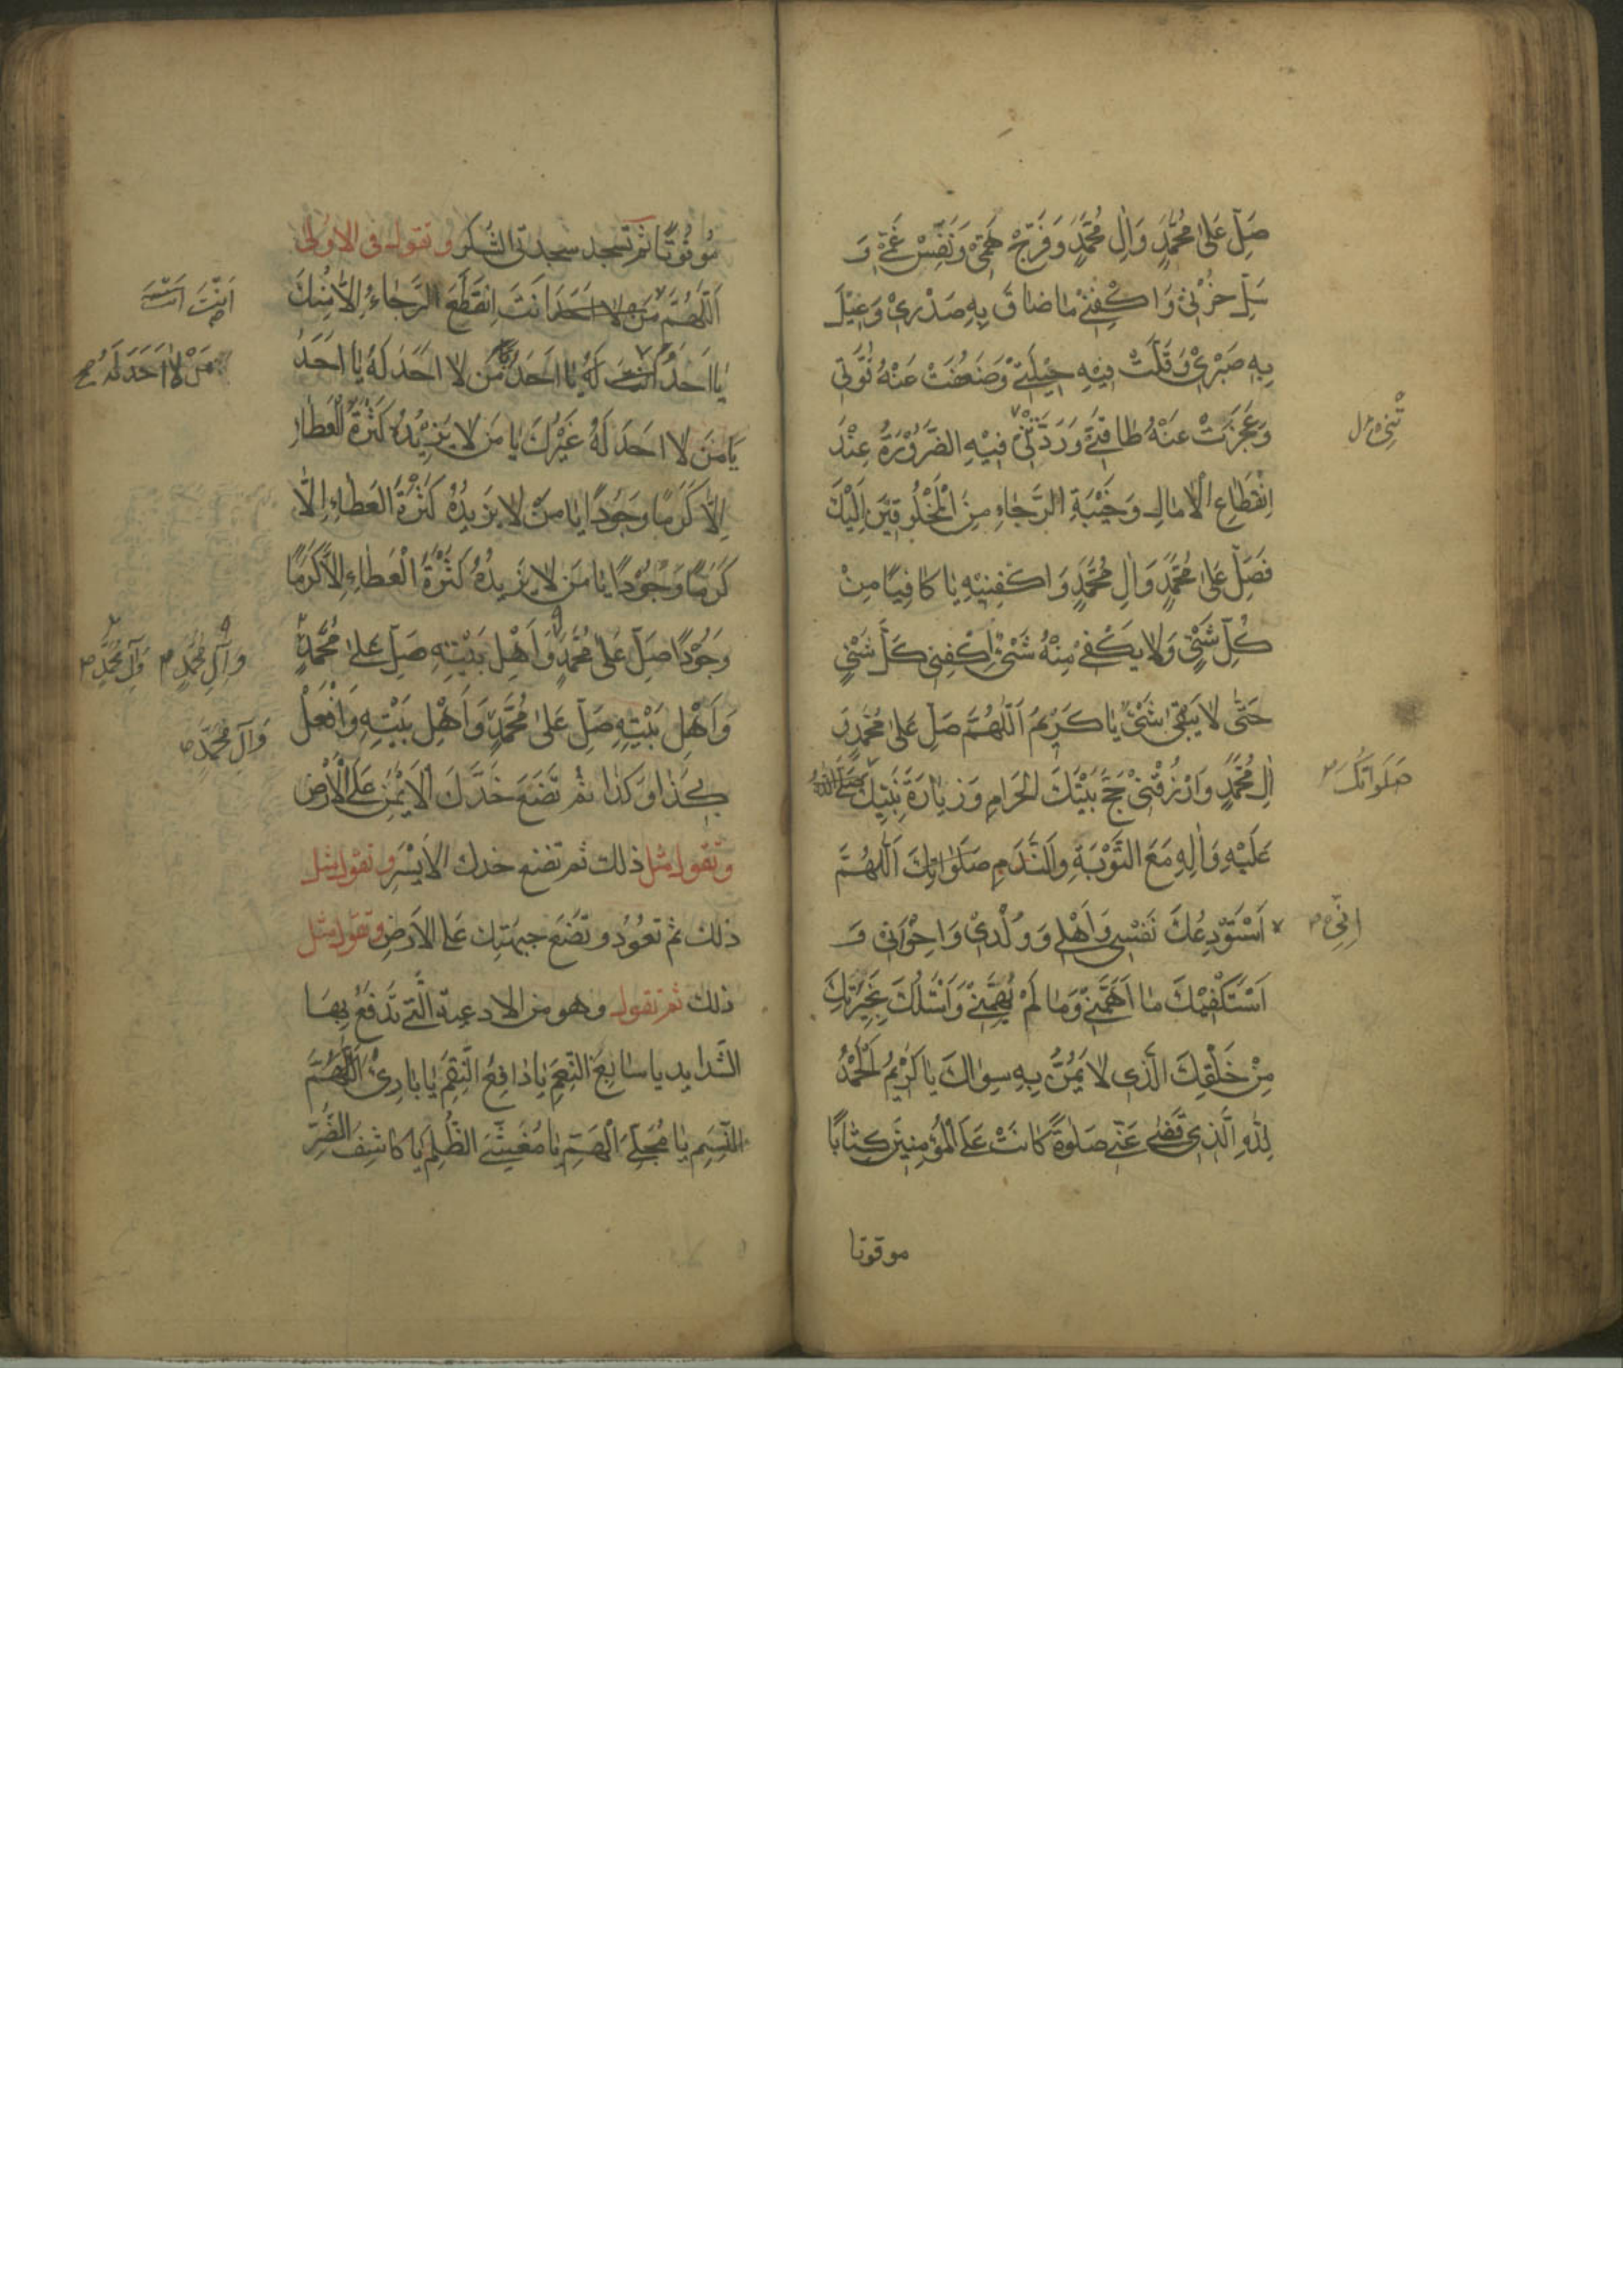 صَلِّ عَلىٰ مُحَمَّدٍ وَاٰلِ مُحَمَّدٍ وَفَرِّجْ هَمّيْ وَنَفِّسْ غَمّي وَ
سَلِّ حُزْنيْ وَاكْفِنيْ مٰا ضٰاقَ بِهِ صَدْريْ وَعيْلَ
بِهِ صَبْريْ وَقَلَّتْ فيْهِ حيْلَتيْ وَضَعُفَتْ عَنْهُ قُوَّتي
وَعَجَزَتْ عَنْهُ طٰاقَتيْ وَرَدَّتْنيْ فيْهِ الضَّرُوْرَةُ عِنْدَ
تْنِي
اِنْقِطٰاعِ الْاٰمٰالِ وَخَيْبَةِ الرَّجٰاءِ مِنَ الْمَخْلُوقيْنَ اِلَيْكَ
فَصَلِّ عَلىٰ مُحَمَّدٍ وَاٰلِ مُحَمَّدٍ وَاكْفِنيْهِ يٰا كٰافِيًا مِنْ
كُلِّ شَيْءٍ وَلٰا يَكْفيْ مِنْهُ شَيْءٌ اِكْفِني كُلَّ شَيْءٍ
حَتّىٰ لٰا يَبْقىٰ شَيْءٌ يٰا كَريْمُ اَللّٰهُمَّ صَلِّ عَلىٰ مُحَمَّدٍ وَ
اٰلِ مُحَمَّدٍ وَارْزُقْنيْ حَجَّ بَيْتِكَ الْحَرٰامِ وَزِيٰارَةَ نَبِيِّكَ صَلَّى اللّٰهُ
صَلَوَاتُكَ
عَلَيْهِ وَاٰلِهِ مَعَ التَّوْبَةِ وَالنَّدَمِ صَلَوٰاتِكَ اَللّٰهُمَّ
اَسْتَوْدِعُكَ نَفْسي وَاَهْلي وَوُلْديْ وَاِخْوَاني وَ
اِنّي
اَسْتَكْفيْكَ مٰا اَهَمَّنيْ وَمٰا لَمْ يُهِمَّنيْ وَاَسْئَلُكَ بِخِيَرَتِكَ
مِنْ خَلْقِكَ الَّذي لٰا يَمُنُّ بِهِ سِوٰاكَ يٰا كَريْمُ اَلْحَمْدُ
لِلّٰهِ الَّذيْ قَضىٰ عَنّي صَلٰوةً كٰانَتْ عَلَى الْمُؤْمِنيْنَ كِتٰابًا
موقوتا
مَوْقُوتًا ثم تسجد سجدتي الشكر و تقول في الاولى
اَللّٰهُمَّ مَنْ لا احد اَنْتَ اِنْقَطَعَ الرَّجٰاءُ اِلّٰا مِنْكَ
اَنْتَ اَنْتَ
يٰا اَحَدُ لَهُ يٰا اَحَدُ مَنْ لٰا اَحَدَ لَهُ يٰا اَحَدُ
مَنْ لٰا اَحَدَ لَهُ
يٰا مَنْ لٰا اَحَدَ لَهُ غَيْرُكَ يٰا مَنْ لٰا يَزيْدُهُ كَثْرَةُ الْعَطٰاءِ
اِلّٰا كَرَمًا وَجُودًا يٰا مَنْ لٰا يَزيْدُهُ كَثْرَةُ الْعَطٰاءِ اِلّٰا
كَرَمًا وَجُوْدًا يٰا مَنْ لٰا يَزيْدُهُ كَثْرَةُ الْعَطٰاءِ اِلّٰا كَرَمًا
وَجُوْدًا صَلِّ عَلىٰ مُحَمَّدٍ وَاَهْلِ بَيْتِهِ صَلِّ عَلىٰ مُحَمَّدٍ
وَآلِ مُحَمَّدٍ وَآلِ مُحَمَّدٍ
وَاَهْلِ بَيْتِهِ صَلِّ عَلىٰ مُحَمَّدٍ وَاَهْلِ بَيْتِهِ وَافْعَلْ
وَآلِ مُحَمَّدٍ
بي كَذٰا وَكَذٰا ثم تَضَعُ خَدَّكَ الْاَيْمَنَ عَلَى الْاَرْضِ
وتقول مثل ذلك ثم تضع خدك الايْسَرَ وتقول مثل
ذلك ثم تعُوْدُ و تَضَعُ جبهَتك على الْاَرضِ وتقول مثل
ذلك ثم تقول وهو من الادعية الَّتي تدفعُ بِهَا
الشَّدايد يا سٰابِغَ النِّعَمِ يٰا دٰافِعَ النِّقَمِ يٰا بٰارِئَ اَللّٰهُمَّ
النَّسَمِ يٰا مُجَلِّيَ الْهِمَمِ يٰا مُغَشِّيَ الظُّلَمِ يٰا كٰاشِفَ الضُّرِّ